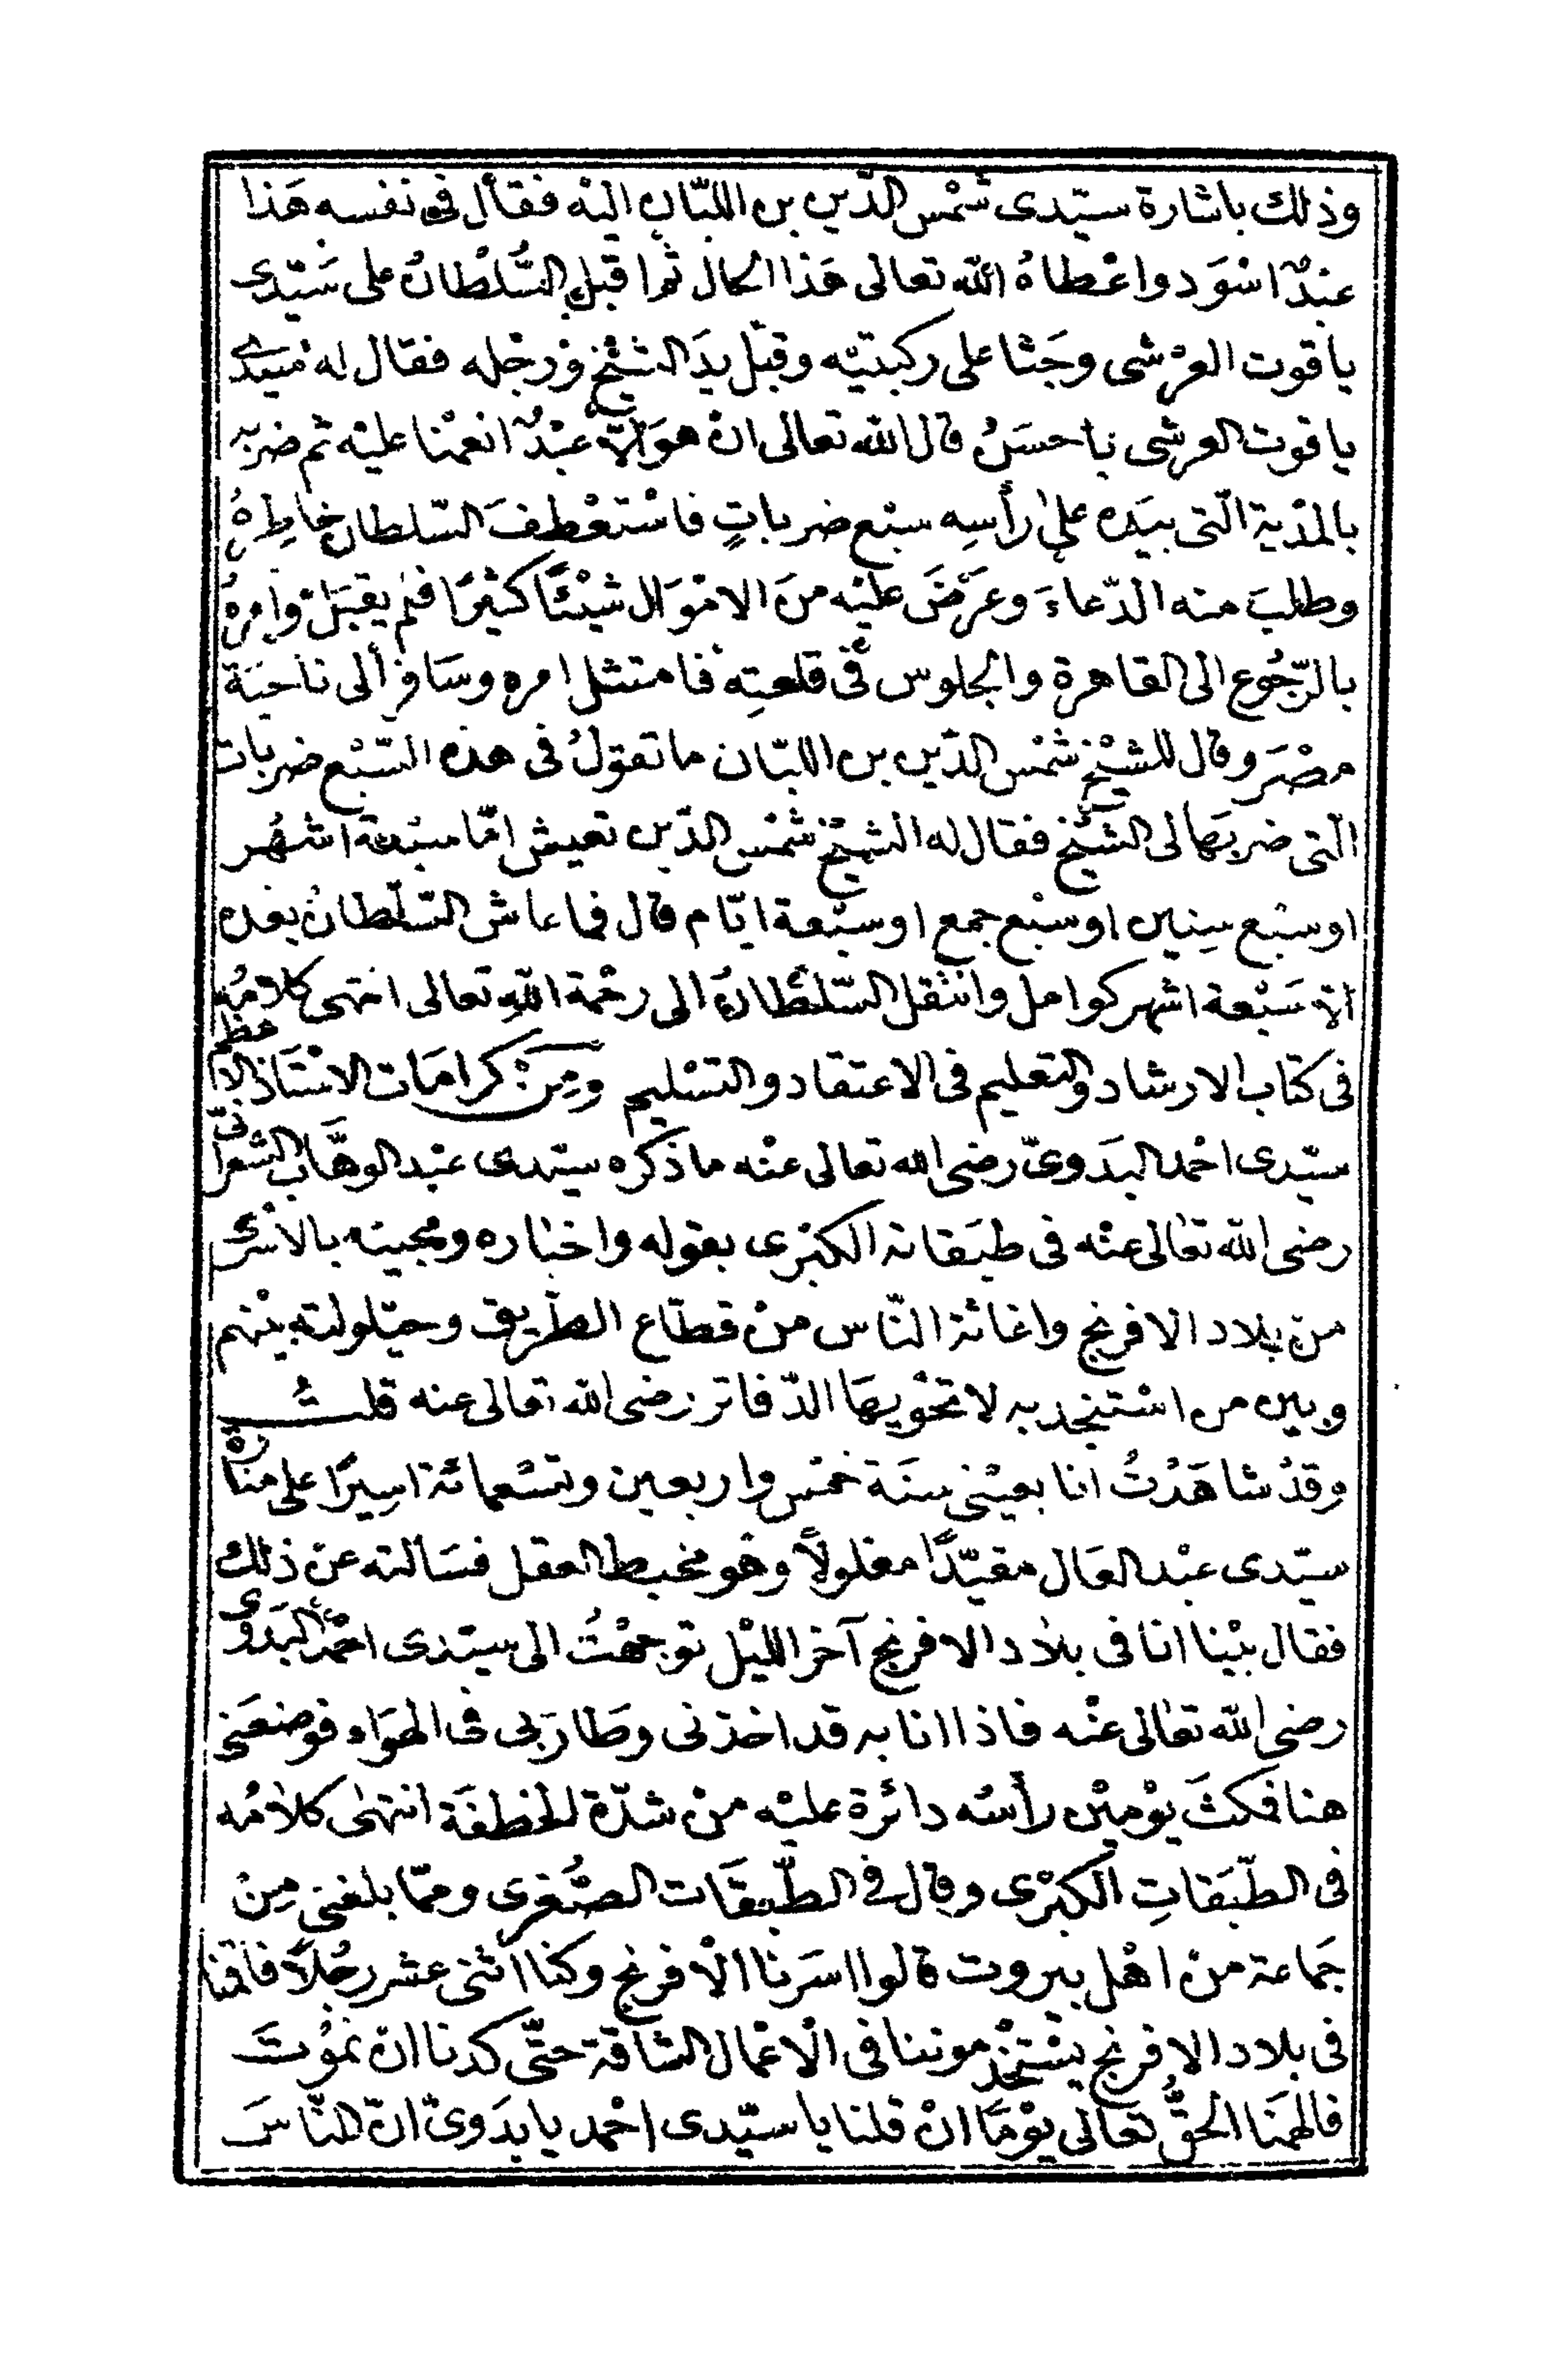 وذلك باشارة سيّدى شمْس الدّين بن اللبّان اليْه فقال فى نفسه هَذا
عبْدٌ اسْوَد واعْطاهُ الله تعالى هَذا الحال ثم اقبل السُّلْطانُ على سَيّدى
ياقوت العرْشى وجَثا على ركبتيْه وقبّل يدَ الشيْخ ورجْله فقال له سيدى
ياقوت العرشى يا حسَنُ قال الله تعالى انْ هوَ الّا عبْدٌ انعمْنا عليْه ثم ضربه
بالمدْية الّتى بيَده على رأسِه سبْع ضرباتٍ فاسْتعْطفَ السّلطان خاطِرهُ
وطلبَ منه الدّعاءَ وعَرَضَ عليْه منَ الامْوَال شيْئًا كثيْرًا فلم يقبَلْ وامرهُ
بالرّجُوع الى القاهرة والجلوس فى قلعتِه فامتثل امره وسَافر الى ناحيَة
مصْرَ وقال للشيْخ شمْس الدّين بن اللبّان ما تقولُ فى هذه السّبْع ضربات
الّتى ضربهَا لى الشيْخ فقال له الشيْخ شمْس الدّين تعيش امّا سبْعة اشهُر
او سبْع سِنين او سبْع جمع او سبْعة ايّام قال فما عاش السّلطانُ بعْده
الّا سَبْعة اشهر كوامل وانتقل السّلطانُ الى رحْمة اللهِ تعالى انتهى كلامُه
فى كتاب الارشاد والتعليم فى الاعتقاد والتسْليم ومِنْ كرامَات الاسْتَاذ الاعظم
سيّدى احْمد البدَوىّ رضى الله تعالى عنْه ما ذكره سيّدى عبْد الوهَّاب الشعْرانىّ
رضى الله تعَالى عنْه فى طبَقاته الكبْرى بقوله واخبَاره ومجيئه بالاسْرى
منْ بلاد الافرنج واغاثة النّاس منْ قطّاع الطّريق وحيْلولته بيْنهم
وبين من اسْتنجد به لا تحْويهَا الدّفاتر رضى الله تعالى عنه قلتُ
وقدْ شاهَدْتُ انا بعيْنى سنَة خمْس واربعين وتسْعمائة اسيرًا على منارة
سيّدى عبْد العَال مقيّدًا مغلولًا وهو مخبط العقل فسَألته عنْ ذلك
فقال بيْنا انا فى بلاد الافرنج آخر الليْل توجهْتُ الى سيّدى احْمد البَدَوى
رضى الله تعَالى عنْه فاذا انا به قد اخذنى وطَار بى فى الهوَاء فوضعَنى
هنا فمكثَ يوْميْن رأسُه دائرة عليْه منْ شدّة الخطفَة انتهى كلامُه
فى الطّبَقاتِ الكبْرى وقال فى الطّبقَات الصُّغرى وممّا بلغنى مِنْ
جَماعة منْ اهْل بيروت قالوا اسَرنا الْافرنج وكنا اثنى عشر رجُلًا فاقمْنا
فى بلاد الافرنج يسْتخدموننا فى الْاعْمال الشاقّة حتّى كدنا ان نموْتَ
فالهمَنا الحقُّ تعَالى يوْمًا انْ قلنا يا سيّدى احْمد يا بدَوىّ انّ النّاسَ